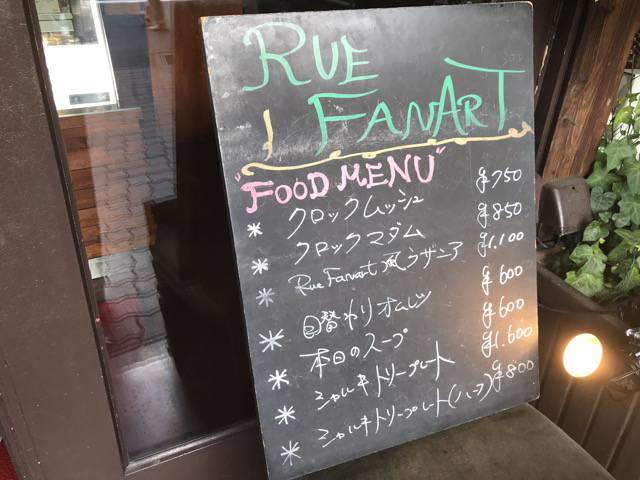 RUE
FANART
"FOOD MENU"
* クロックムッシュ ¥750
* クロックマダム ¥850
* Rue Fanart 風ラザニア ¥1,100
* 日替わりオムレツ ¥600
* 本日のスープ ¥600
* シャルキトリープレート ¥1,600
* シャルキトリープレート(ハーフ) ¥800